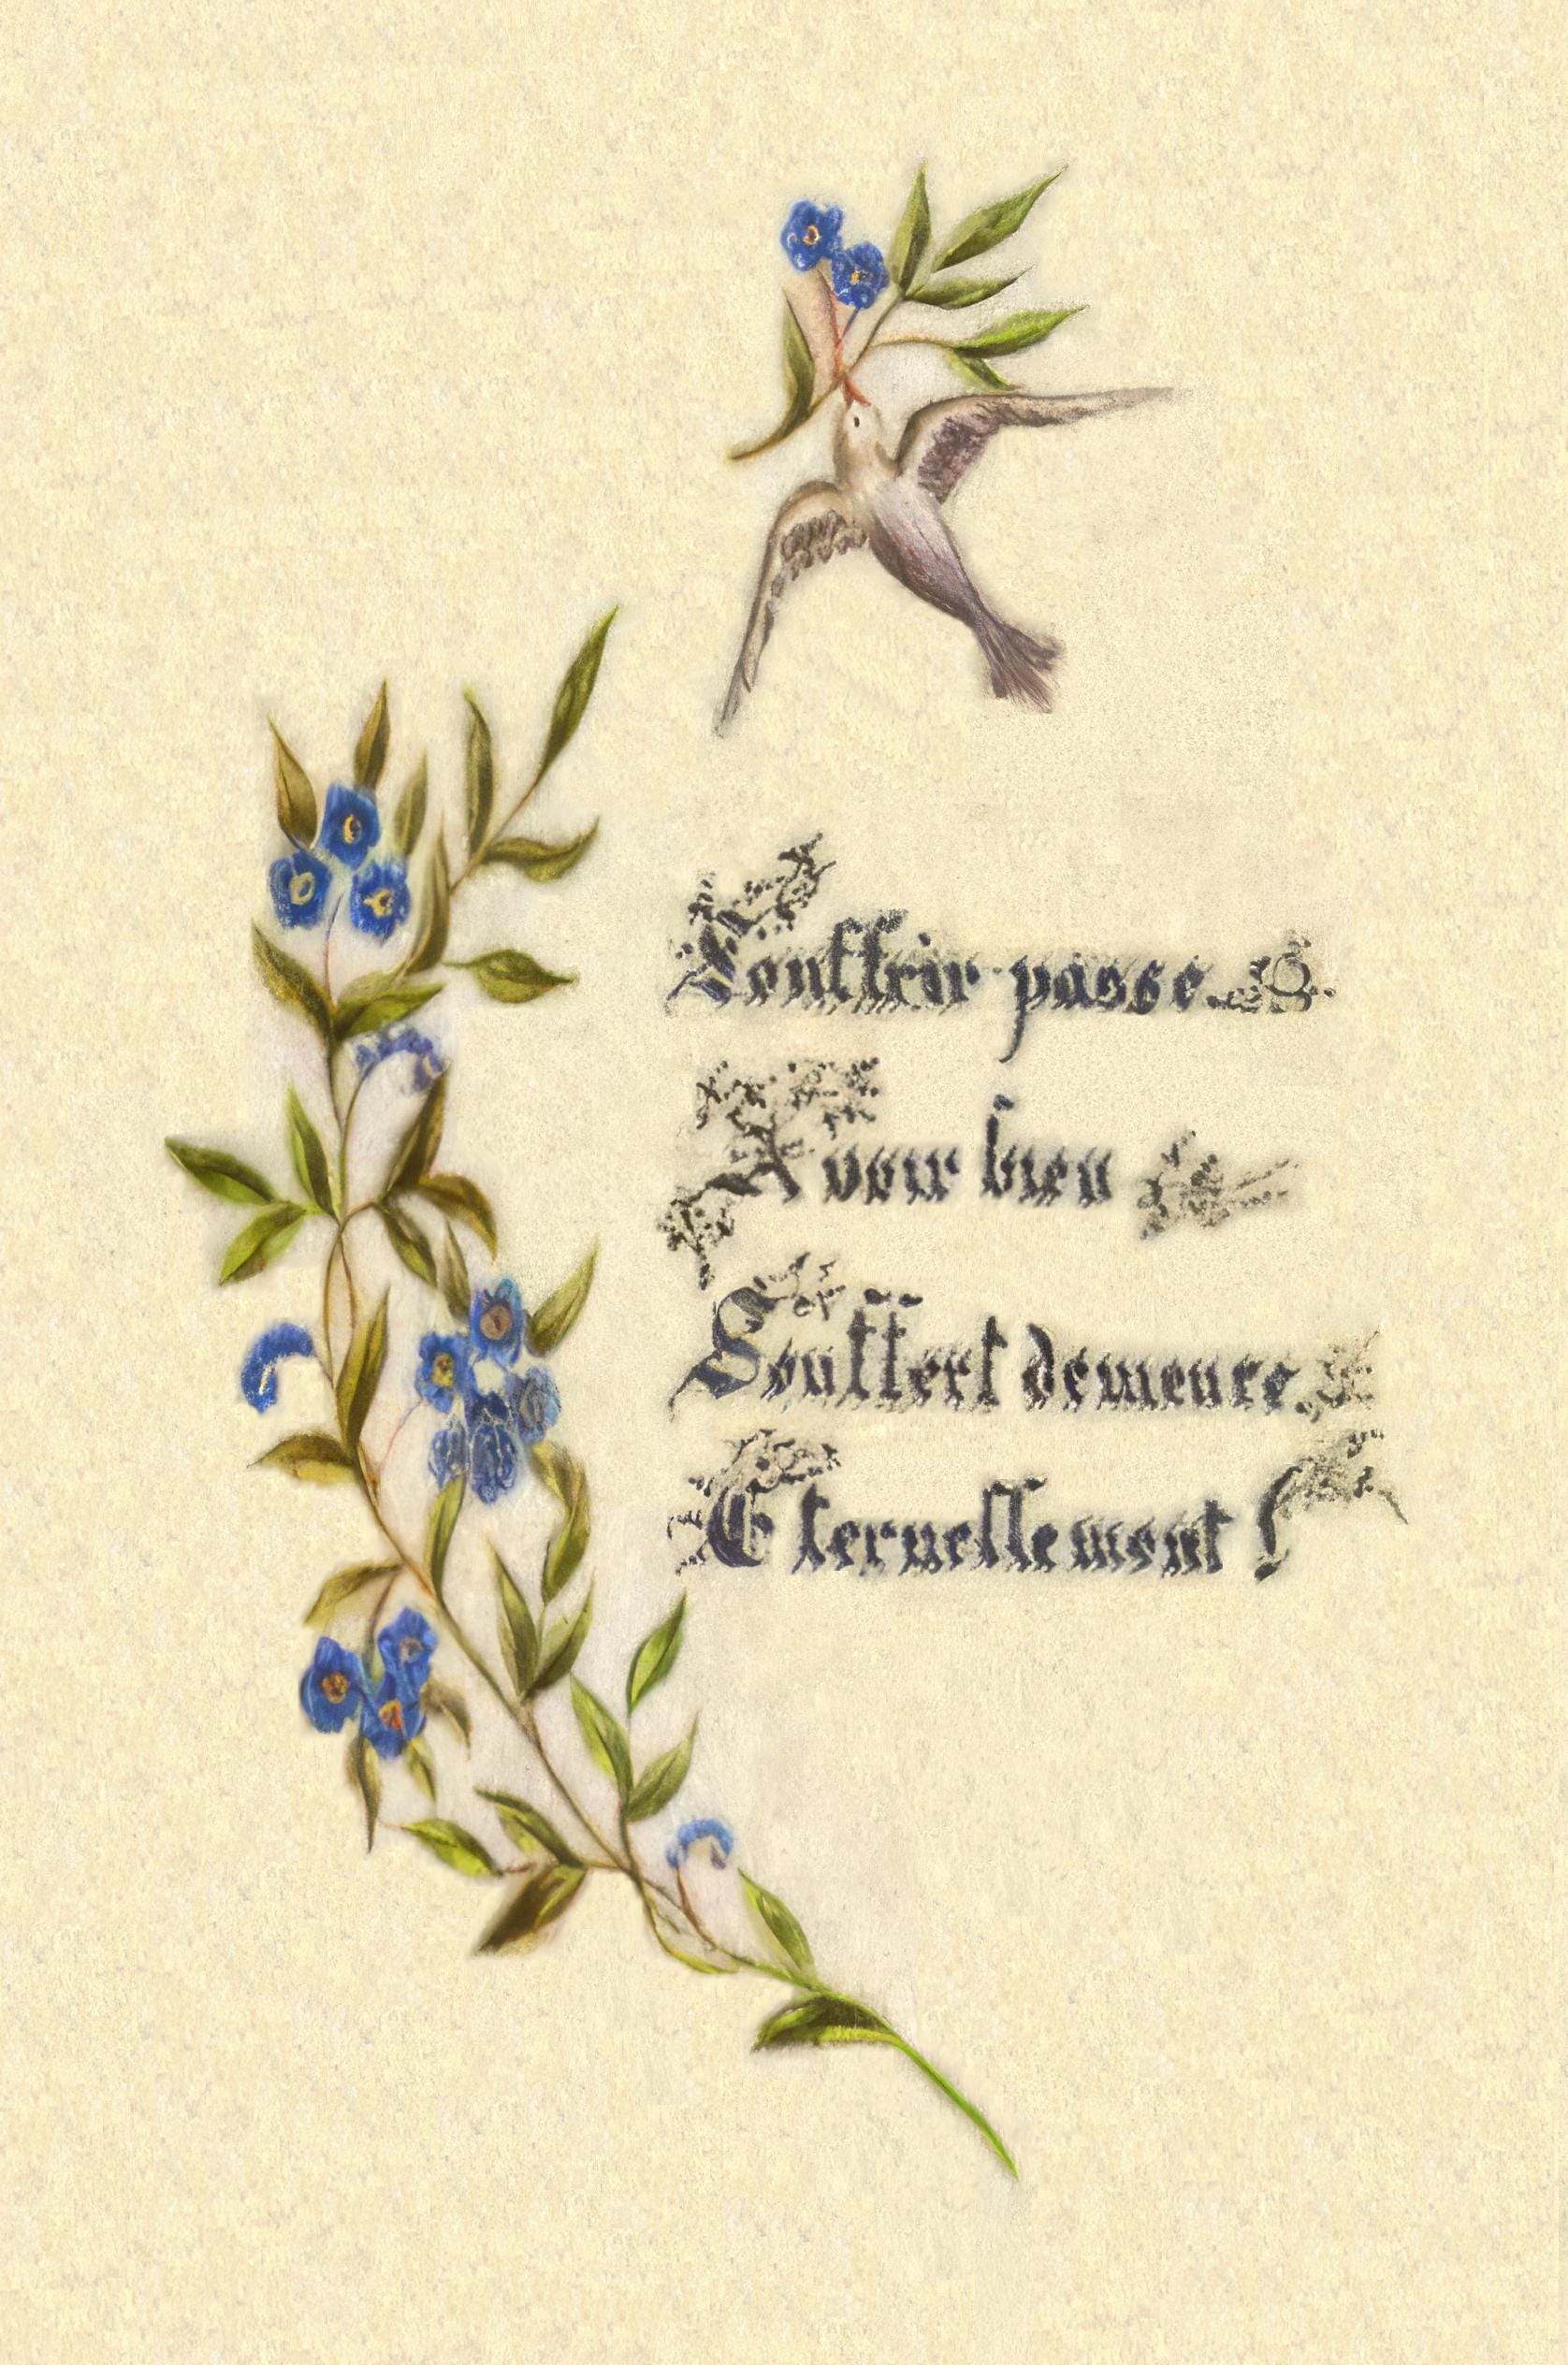 Souffrir passe
Avoir bien
Souffert demeure
Eternellement !